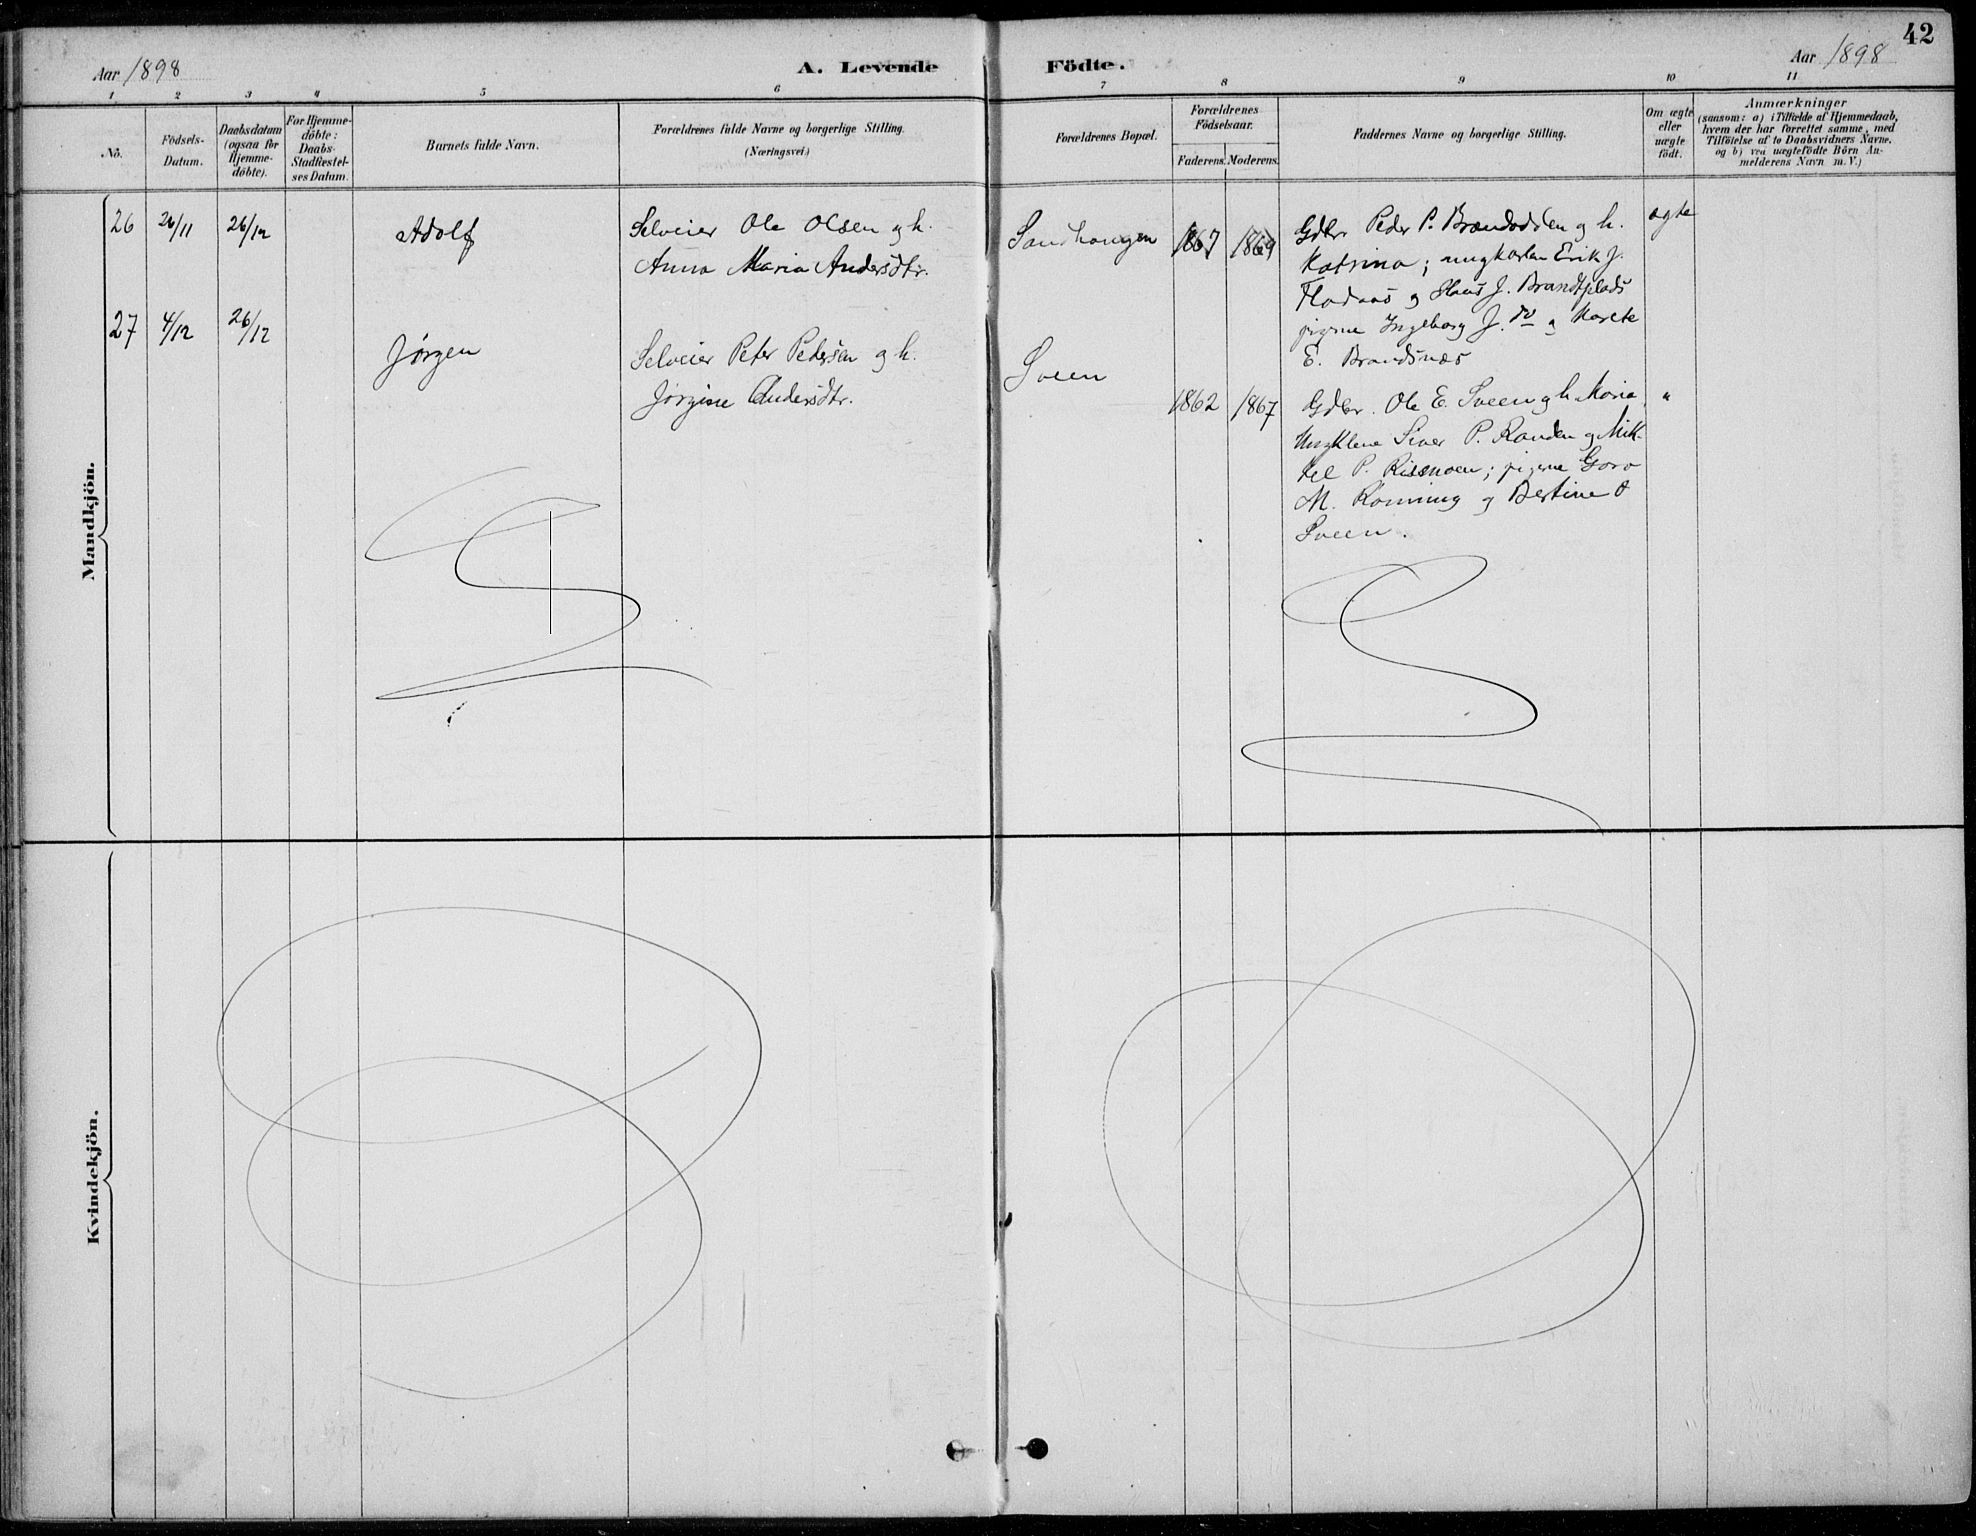 42
Aar 1898
A. Levende Födte.
Aar 1898
1 2 3 4 5 6 7 8 9 10 11
No.
Födsels-
Datum.
Daabsdatum
(ogsaa for
Hjemme-
döbte).
For Hjemme-
döbte:
Daabs-
Stadfæstel-
ses Datum.
Barnets fulde Navn.
Forældrenes fulde Navne og borgerlige Stilling.
(Næringsvei.)
Forældrenes Bopæl.
Forældrenes
Födselsaar.
Faderens. Moderens.
Faddernes Navne og borgerlige Stilling.
Om ægte
eller
uægte
födt.
Anmærkninger
(saasom: a) i Tilfælde af Hjemmedaab,
hvem der har forrettet samme, med
Tilföielse af to Daabsvidners Navne,
og b) ved uægtefödte Börn An-
melderens Navn m. V.)
Mandkjön.
26 26/11 26/12 Adolf
Selveier Ole Olsen og h.
Anna Maria Andersdtr.
Sandhaugen 1867 1869
Gdbr. Peder P. Brændodden og h.
Katrina; ungkarlen Erik J.
Flodaas og Hans J. Brandtplads
pigerne Ingeborg J. do og Marete
E. Brandsnæs
ægte
27 4/12 26/12 Jørgen
Selveier Peter Pedersen og h.
Jørgine Andersdtr.
Sveen
1862 1867
Gdbr. Ole E. Sveen og h. Maria,
Ungklene Siver P. Randen og Mik-
kel P. Risemoen; pigerne Goro
M. Rønning og Bertine O
Sveen.
"
Kvindekjön.